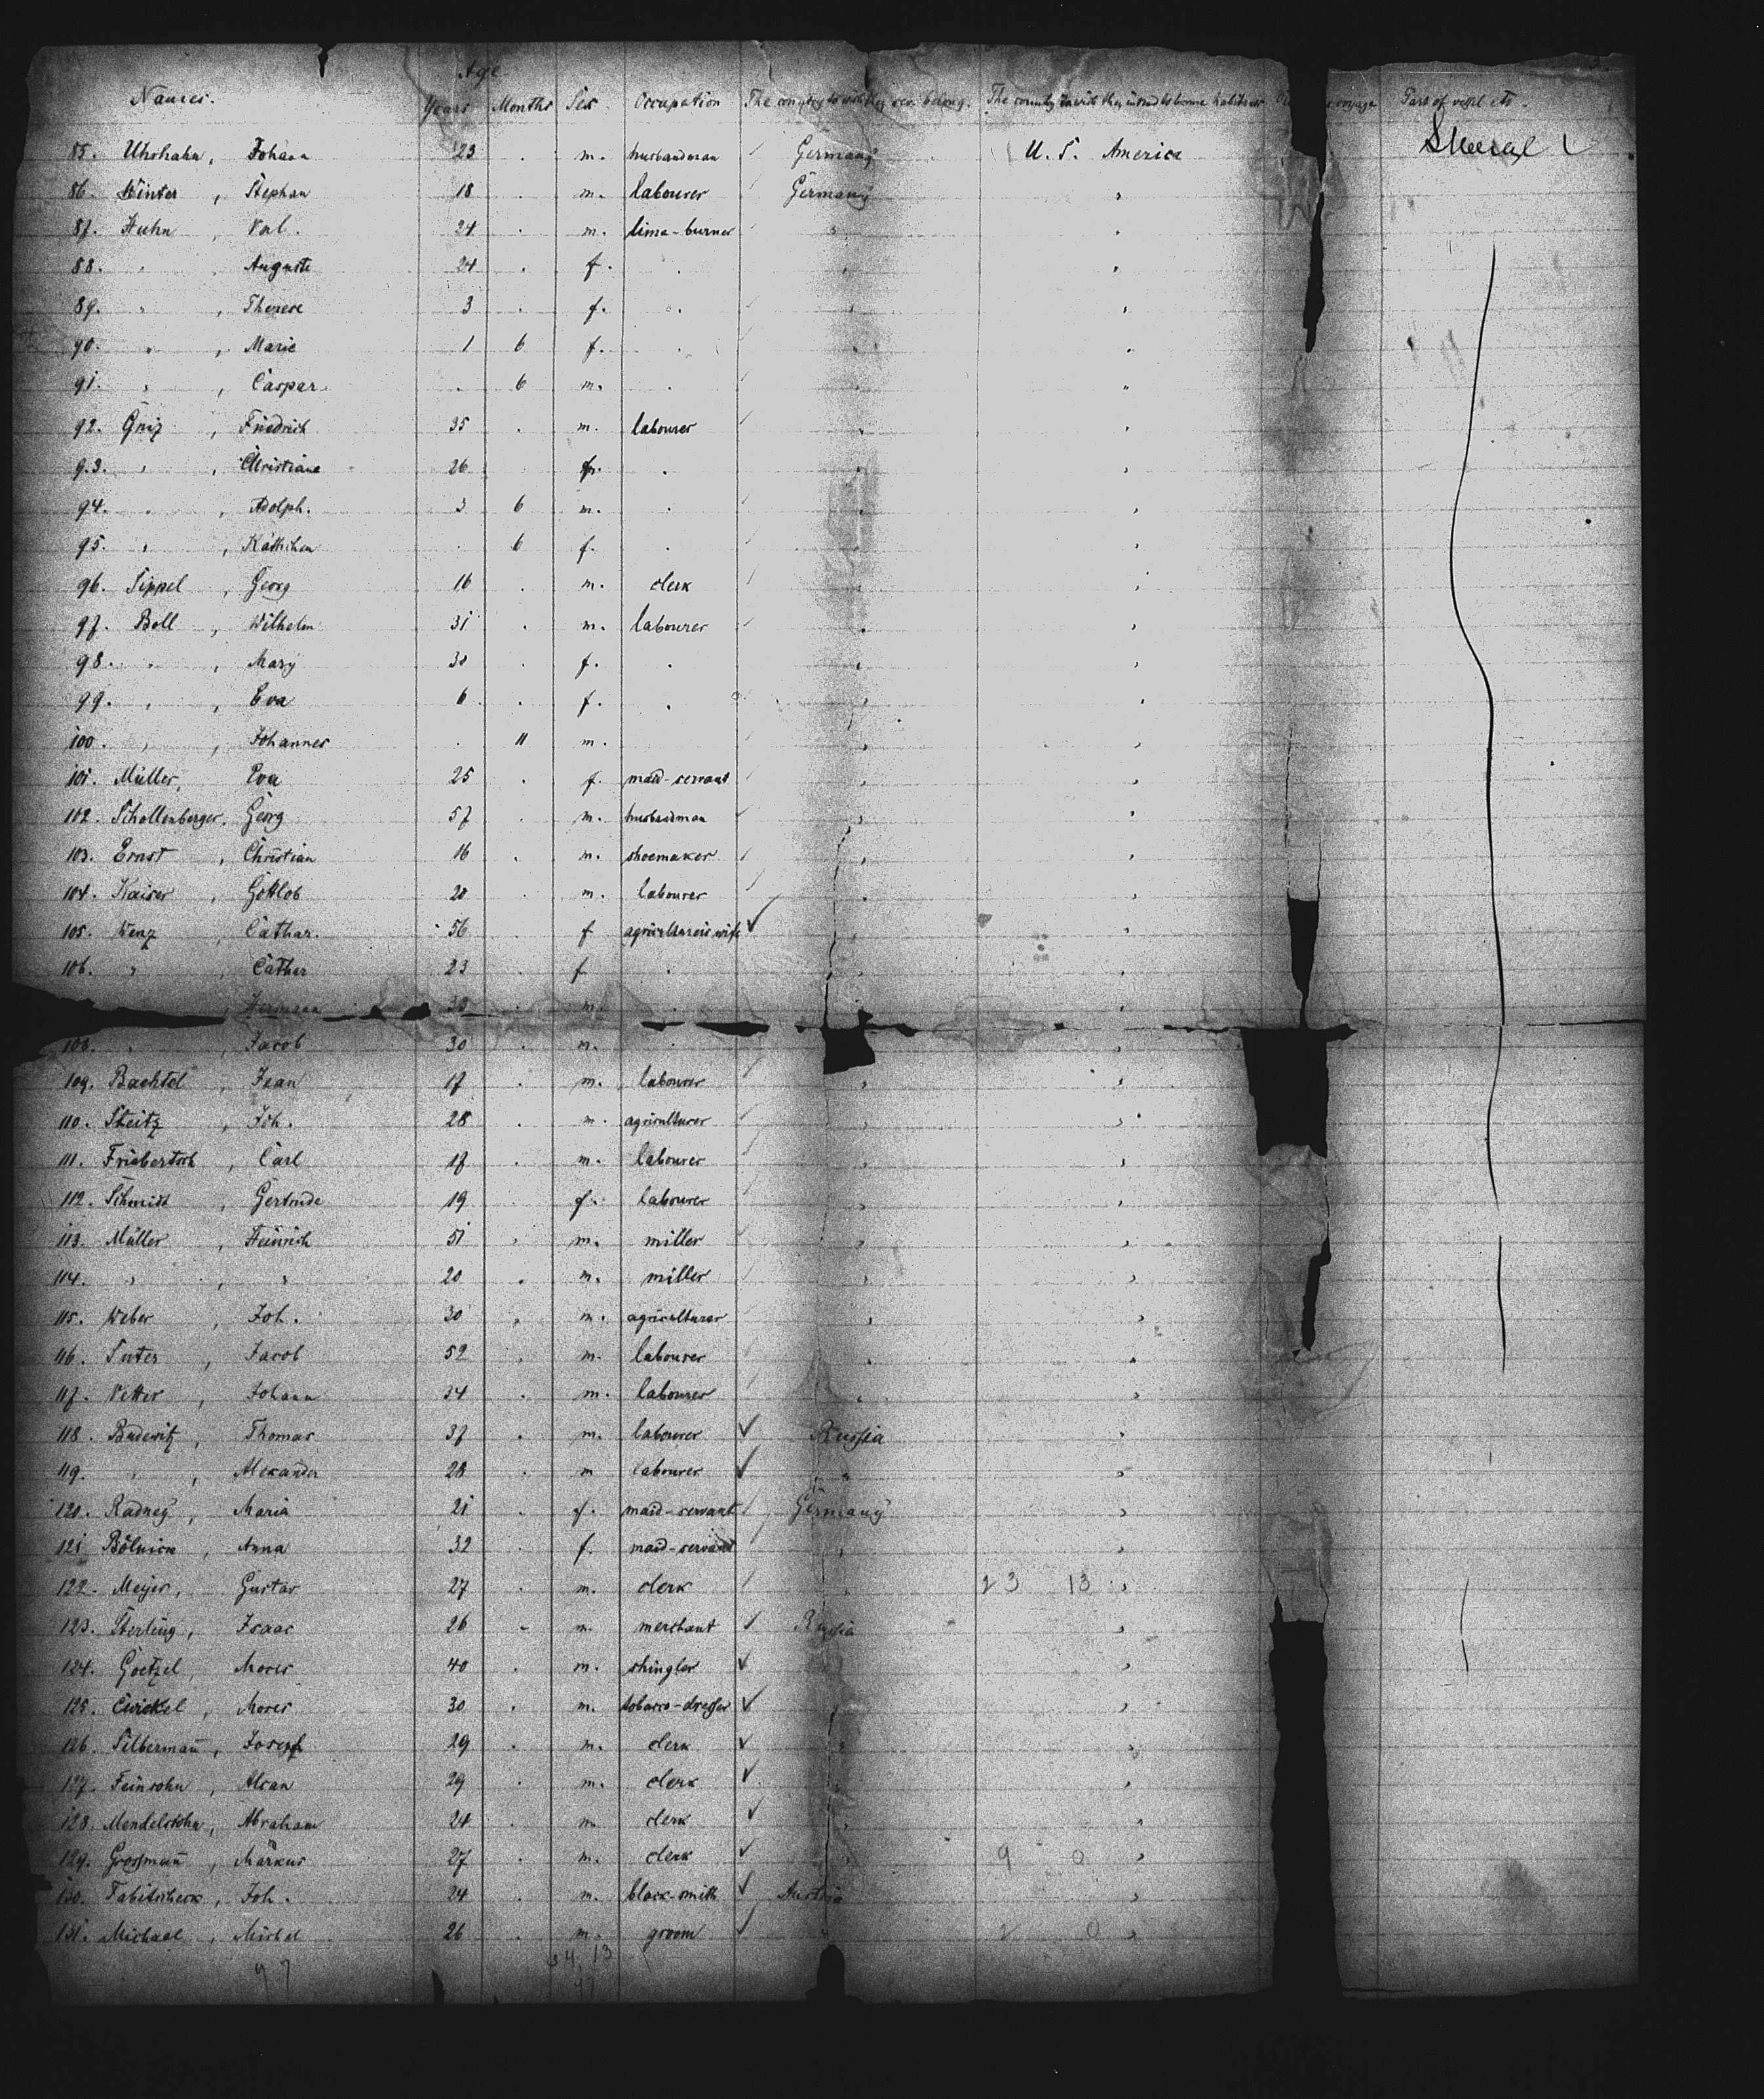 Age
Names. Years Months Sex Occupation The country to wich they sev. belong. The country to wich they intend to become habitans voyage Part of vessel etc.
85. Uhrhahn, Johann 23 . m. husbandman Germany U. S. America Steerage
86. Winter, Stephan 18 . m. labourer Germany "
87. Huhn, Val. 24 . m. lime-burner " "
88. " Auguste 24 . f. . " "
89. " , Therese 3 . f. . " "
90. " , Marie 1 6 f. . " "
91. " , Caspar . 6 m. . " "
92. Friedrich 35 . m. labourer " "
93. " , Christiane 26 f. . " "
94. " , Adolph. 3 6 m. . " "
95. " , Käthchen . 6 f. . " "
96. Sippel, Georg 16 . m. clerk " "
97. Boll, Wilhelm 31 . m. labourer " "
98. " , Mary 30 . f. . " "
99. " , Eva 6 . f. . " "
100. " , Johannes . 11 m. " "
101. Müller, Eva 25 . f. maid-servant " "
102. Schollenberger, Georg 57 . m. husbandman " "
103. Ernst, Christian 16 . m. shoemaker " "
104. Kaiser, Gottlob 20 . m. labourer " "
105. Wenz, Cathar. 56 f agriculturers wife " "
106. " , Cathar 23 . f . " "
, Hermann 32 . m. . " "
108. " , Jacob 30 . m. . "
109. Bachtel, Jean 17 . m. labourer " "
110. Steitz, Joh. 28 . m. agriculturer " "
111. Friebertsch, Carl 17 . m. labourer " "
112. Schmidt, Gertrude 19 . f. labourer " "
113. Müller, Heinrich 51 . m. miller " "
114. " , " 20 . m. miller " "
115. Weber, Joh. 30 . m. agriculturer " "
116. Suter, Jacob 52 . m. labourer " "
117. Vetter, Johann 34 . m. labourer " "
118. Budewitz, Thomas 37 . m. labourer Russia "
119. " , Alexander 28 . m labourer " "
120. Radney, Maria 21 . f. maid-servant Germany "
121 Bölnick, Anna 32 . f. maid-servant " "
122. Meyer, Gustav 27 . m. clerk " 23 13 "
123. Sterling, Isaac 26 - m. merchant Russia "
124. Goetzel, Moses 40 . m. shingler "
125. Cwickel, Moses 30 . m. tobacco-dresser "
126. Silberman̄, Joseph 29 . m. clerk " "
127. Feinsohn, Alcan 29 . m. clerk "
128. Mendelssohn, Abraham 24 . m clerk " "
129. Grossman̄, Markus 27 . m. clerk " 9 0 "
130. Tabitscheck, Joh. 24 . m. black-smith Austria "
131. Michael, Michel 26 . m. groom " 2 0 "
97 34, 13
47